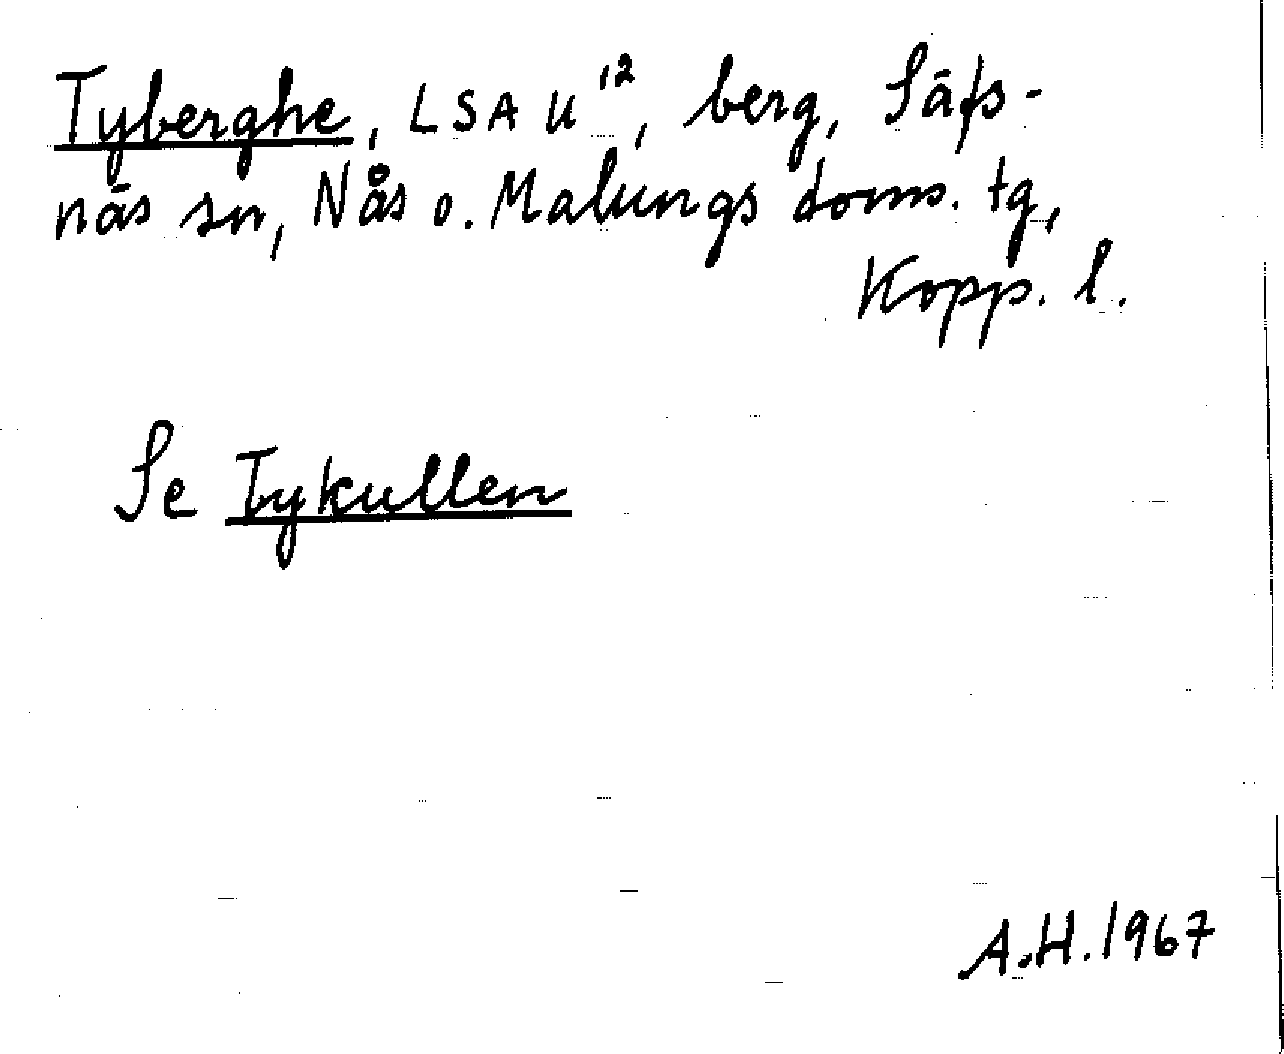 Tyberghe, LSA U'², berg, Säfs-
näs sn, Nås o. Malungs doms. tg,
Kopp. l.
Se Tykullen
A.H. 1967